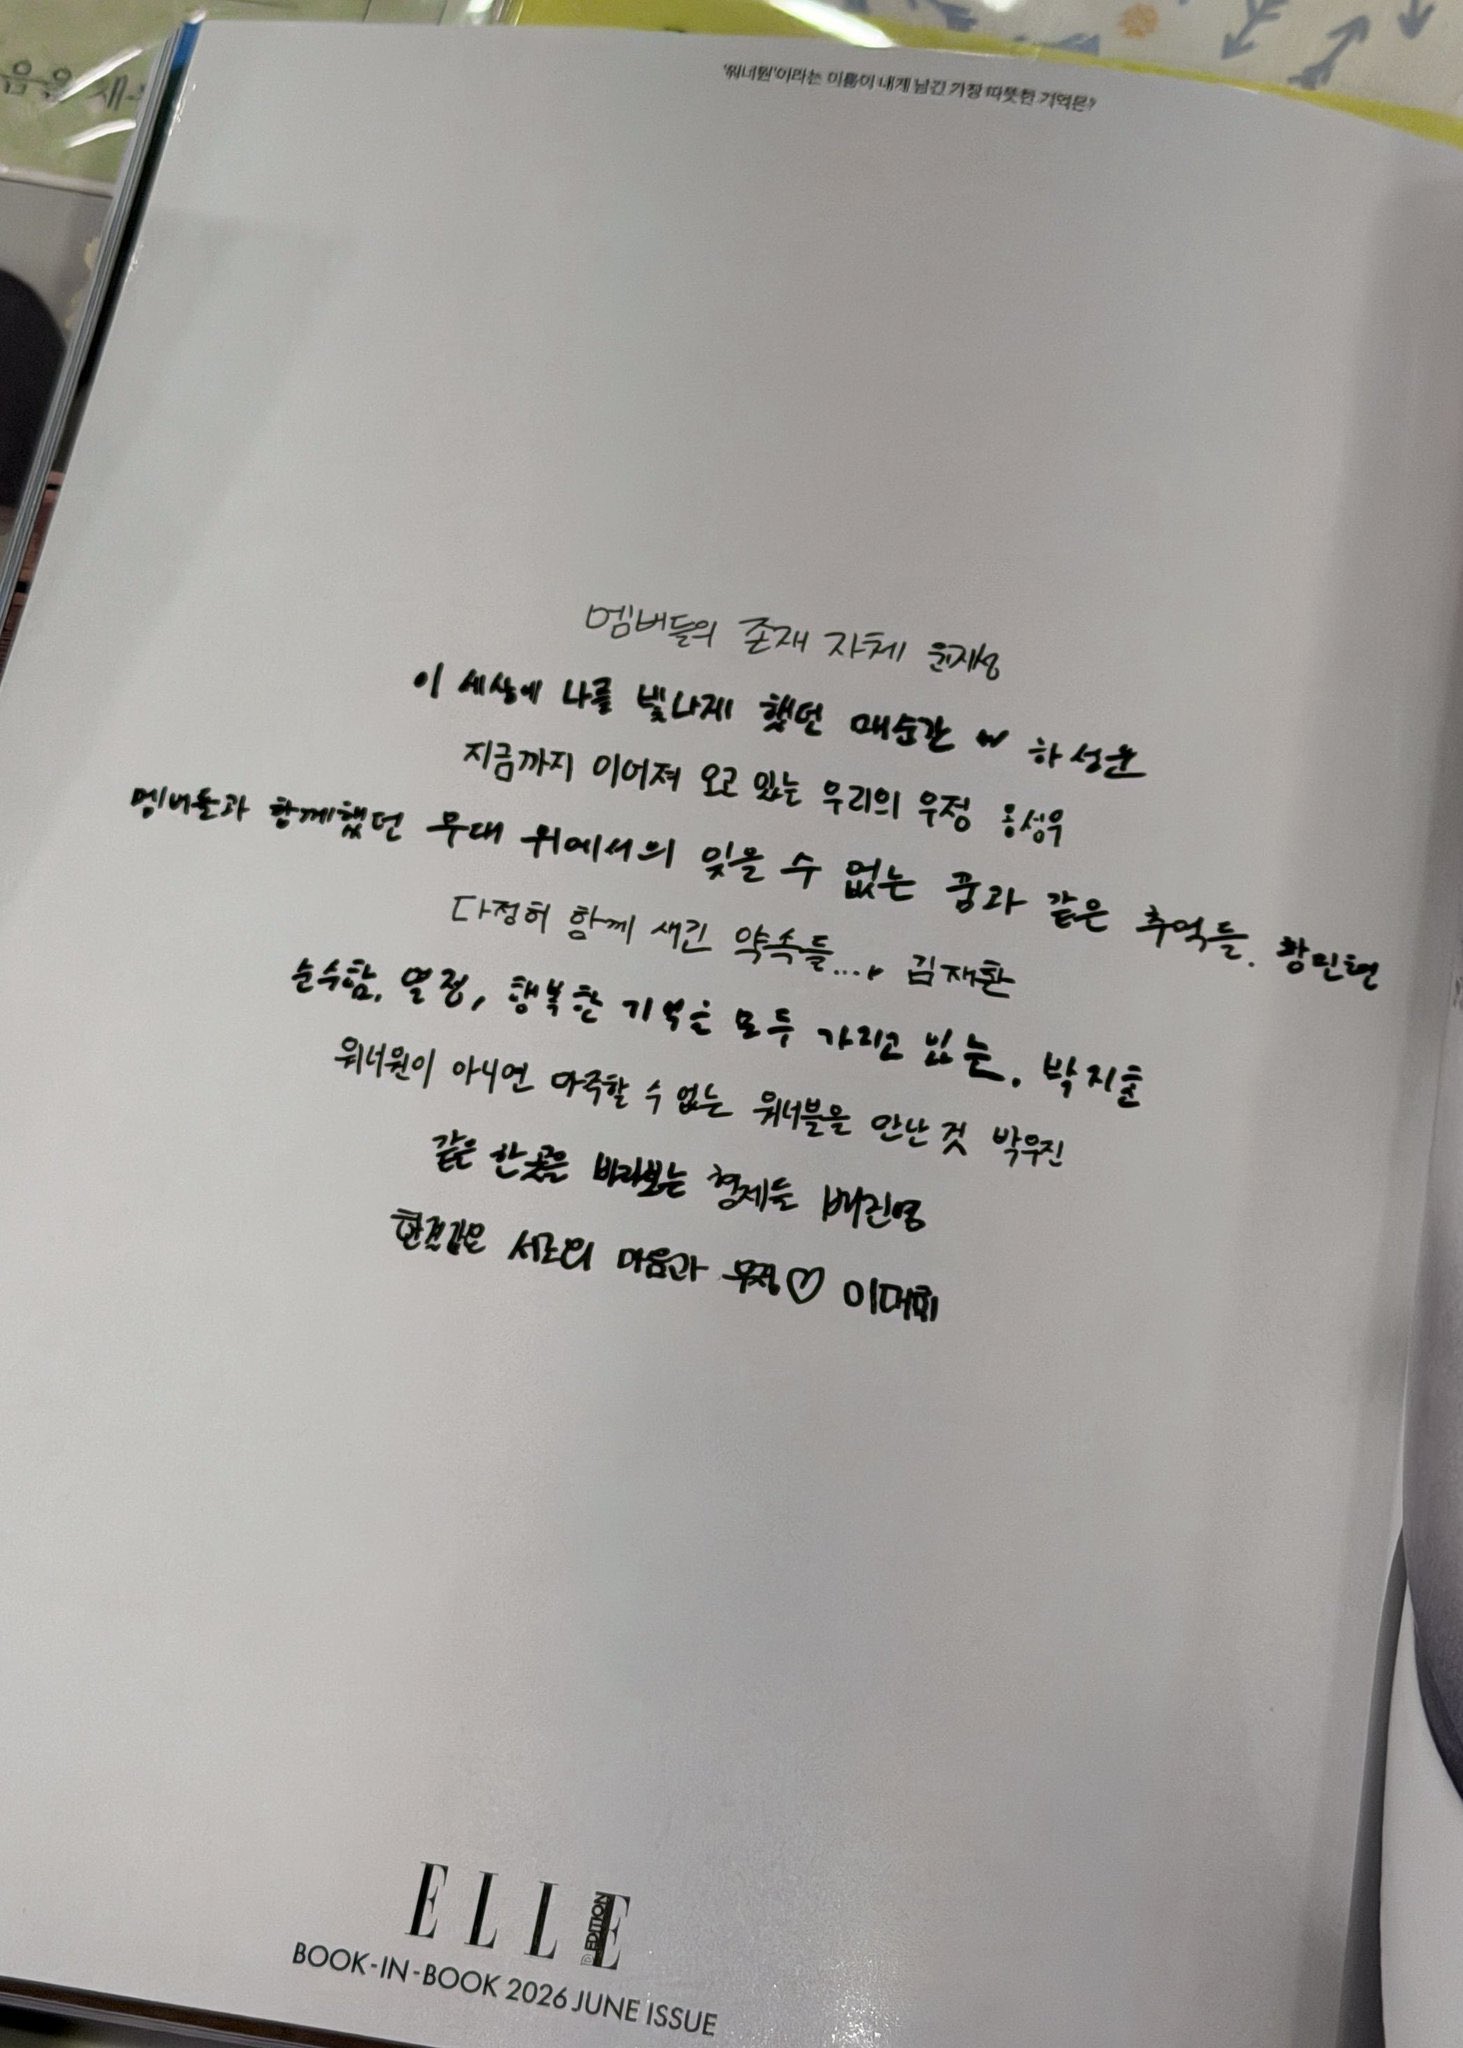 '워너원'이라는 이름이 내게 남긴 가장 따뜻한 기억은?
멤버들의 존재 자체 윤지성
이 세상에 나를 빛나게 했던 매순간 하성운
지금까지 이어져 오고 있는 우리의 우정 옹성우
멤버들과 함께했던 무대 위에서의 잊을 수 없는 꿈과 같은 추억들. 황민현
다정히 함께 새긴 약속들..., 김재환
순수함, 열정, 행복한 기억을 모두 가리고 있는. 박지훈
워너원이 아니면 마주할 수 없는 워너블을 만난 것 박우진
같은 한 곳을 바라보는 형제들 배진영
한결같은 서로의 마음과 우정♡ 이대휘
ELLE
D EDITION
BOOK-IN-BOOK 2026 JUNE ISSUE